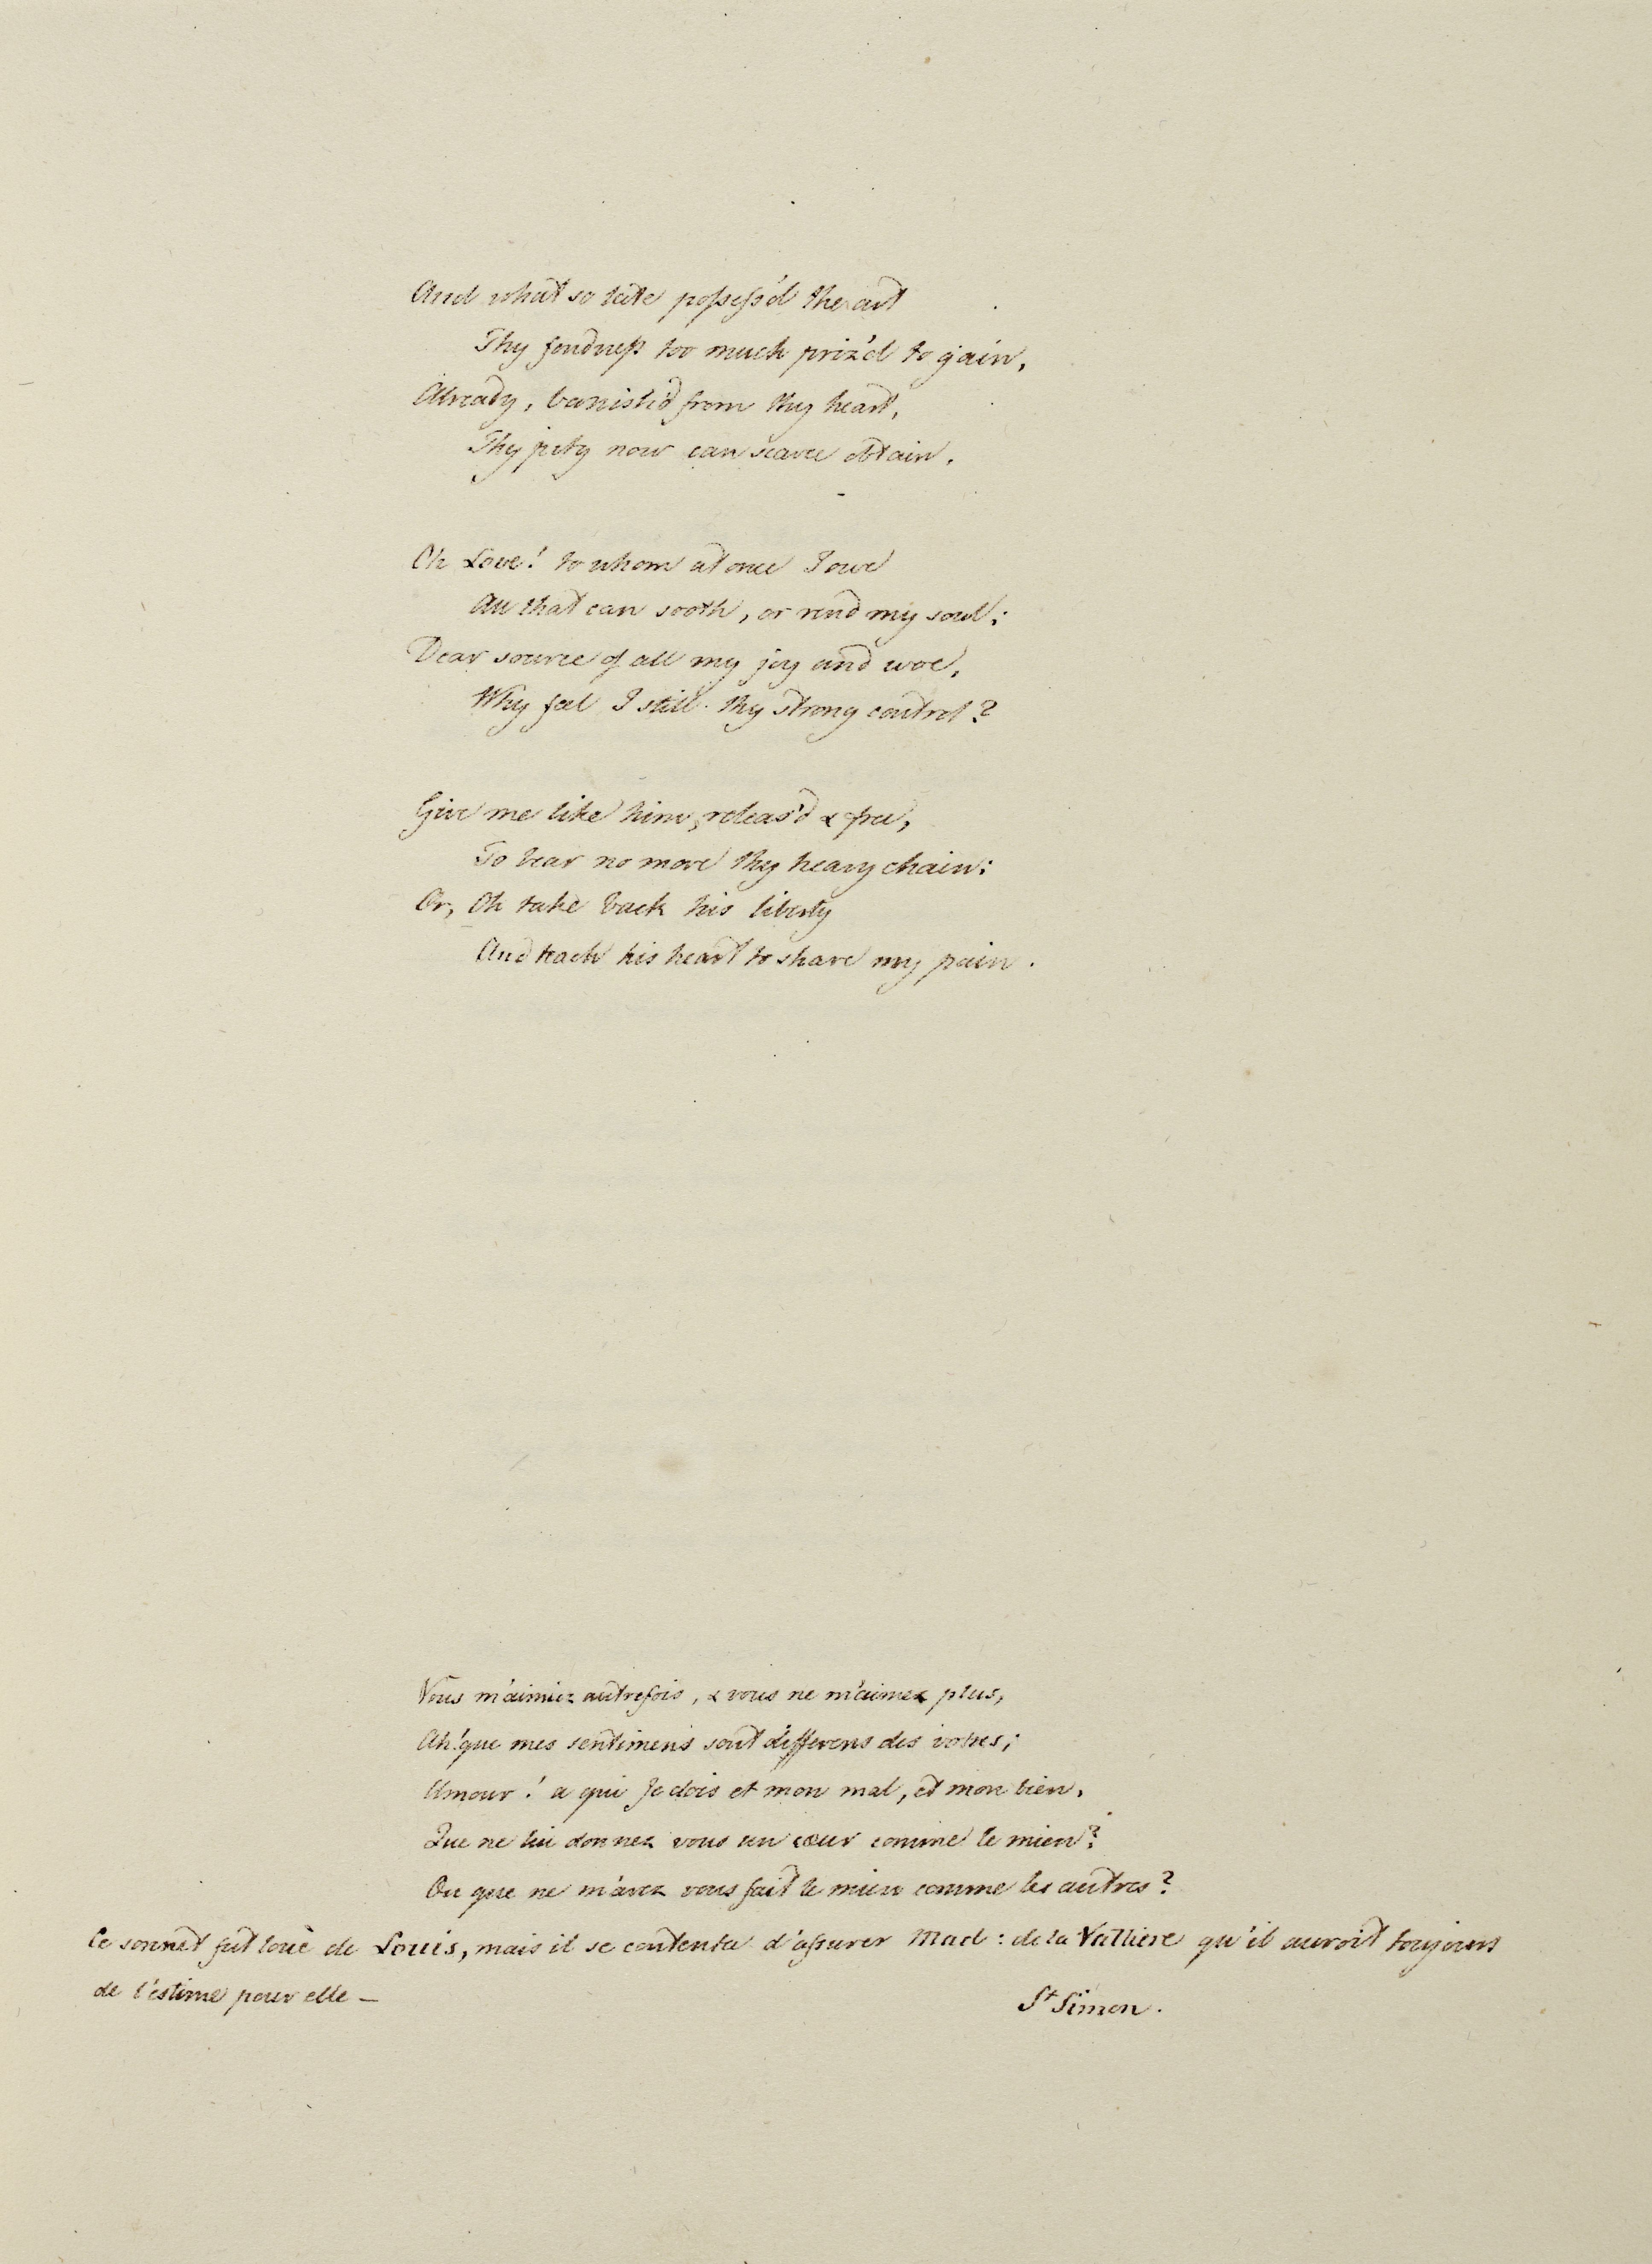 And what so late possess'd the art
Thy fondness too much priz'd to gain,
Already, banish'd from thy heart,
Thy pity now can scarce obtain.
Oh Love! to whom at once I owe
All that can sooth, or rend my soul;
Dear source of all my joy and woe,
Why feel I still thy strong control?
Give me like him, releas'd & free,
To bear no more thy heavy chain;
Or, Oh take back his liberty
And teach his heart to share my pain.
Vous m'aimiez autrefois, & vous ne m'aimez plus,
Ah! que mes sentimens sont differens des votres;
Amour! a qui je dois et mon mal, et mon bien,
Que ne lui donnez vous un cœur comme le mien?
Ou que ne m'avez vous fait le mien comme les autres?
Ce sonnet fut loué de Louis, mais il se contenta d'assurer Mad: de la Valliere qu'il auroit toujours
de l'estime pour elle —
St Simon.